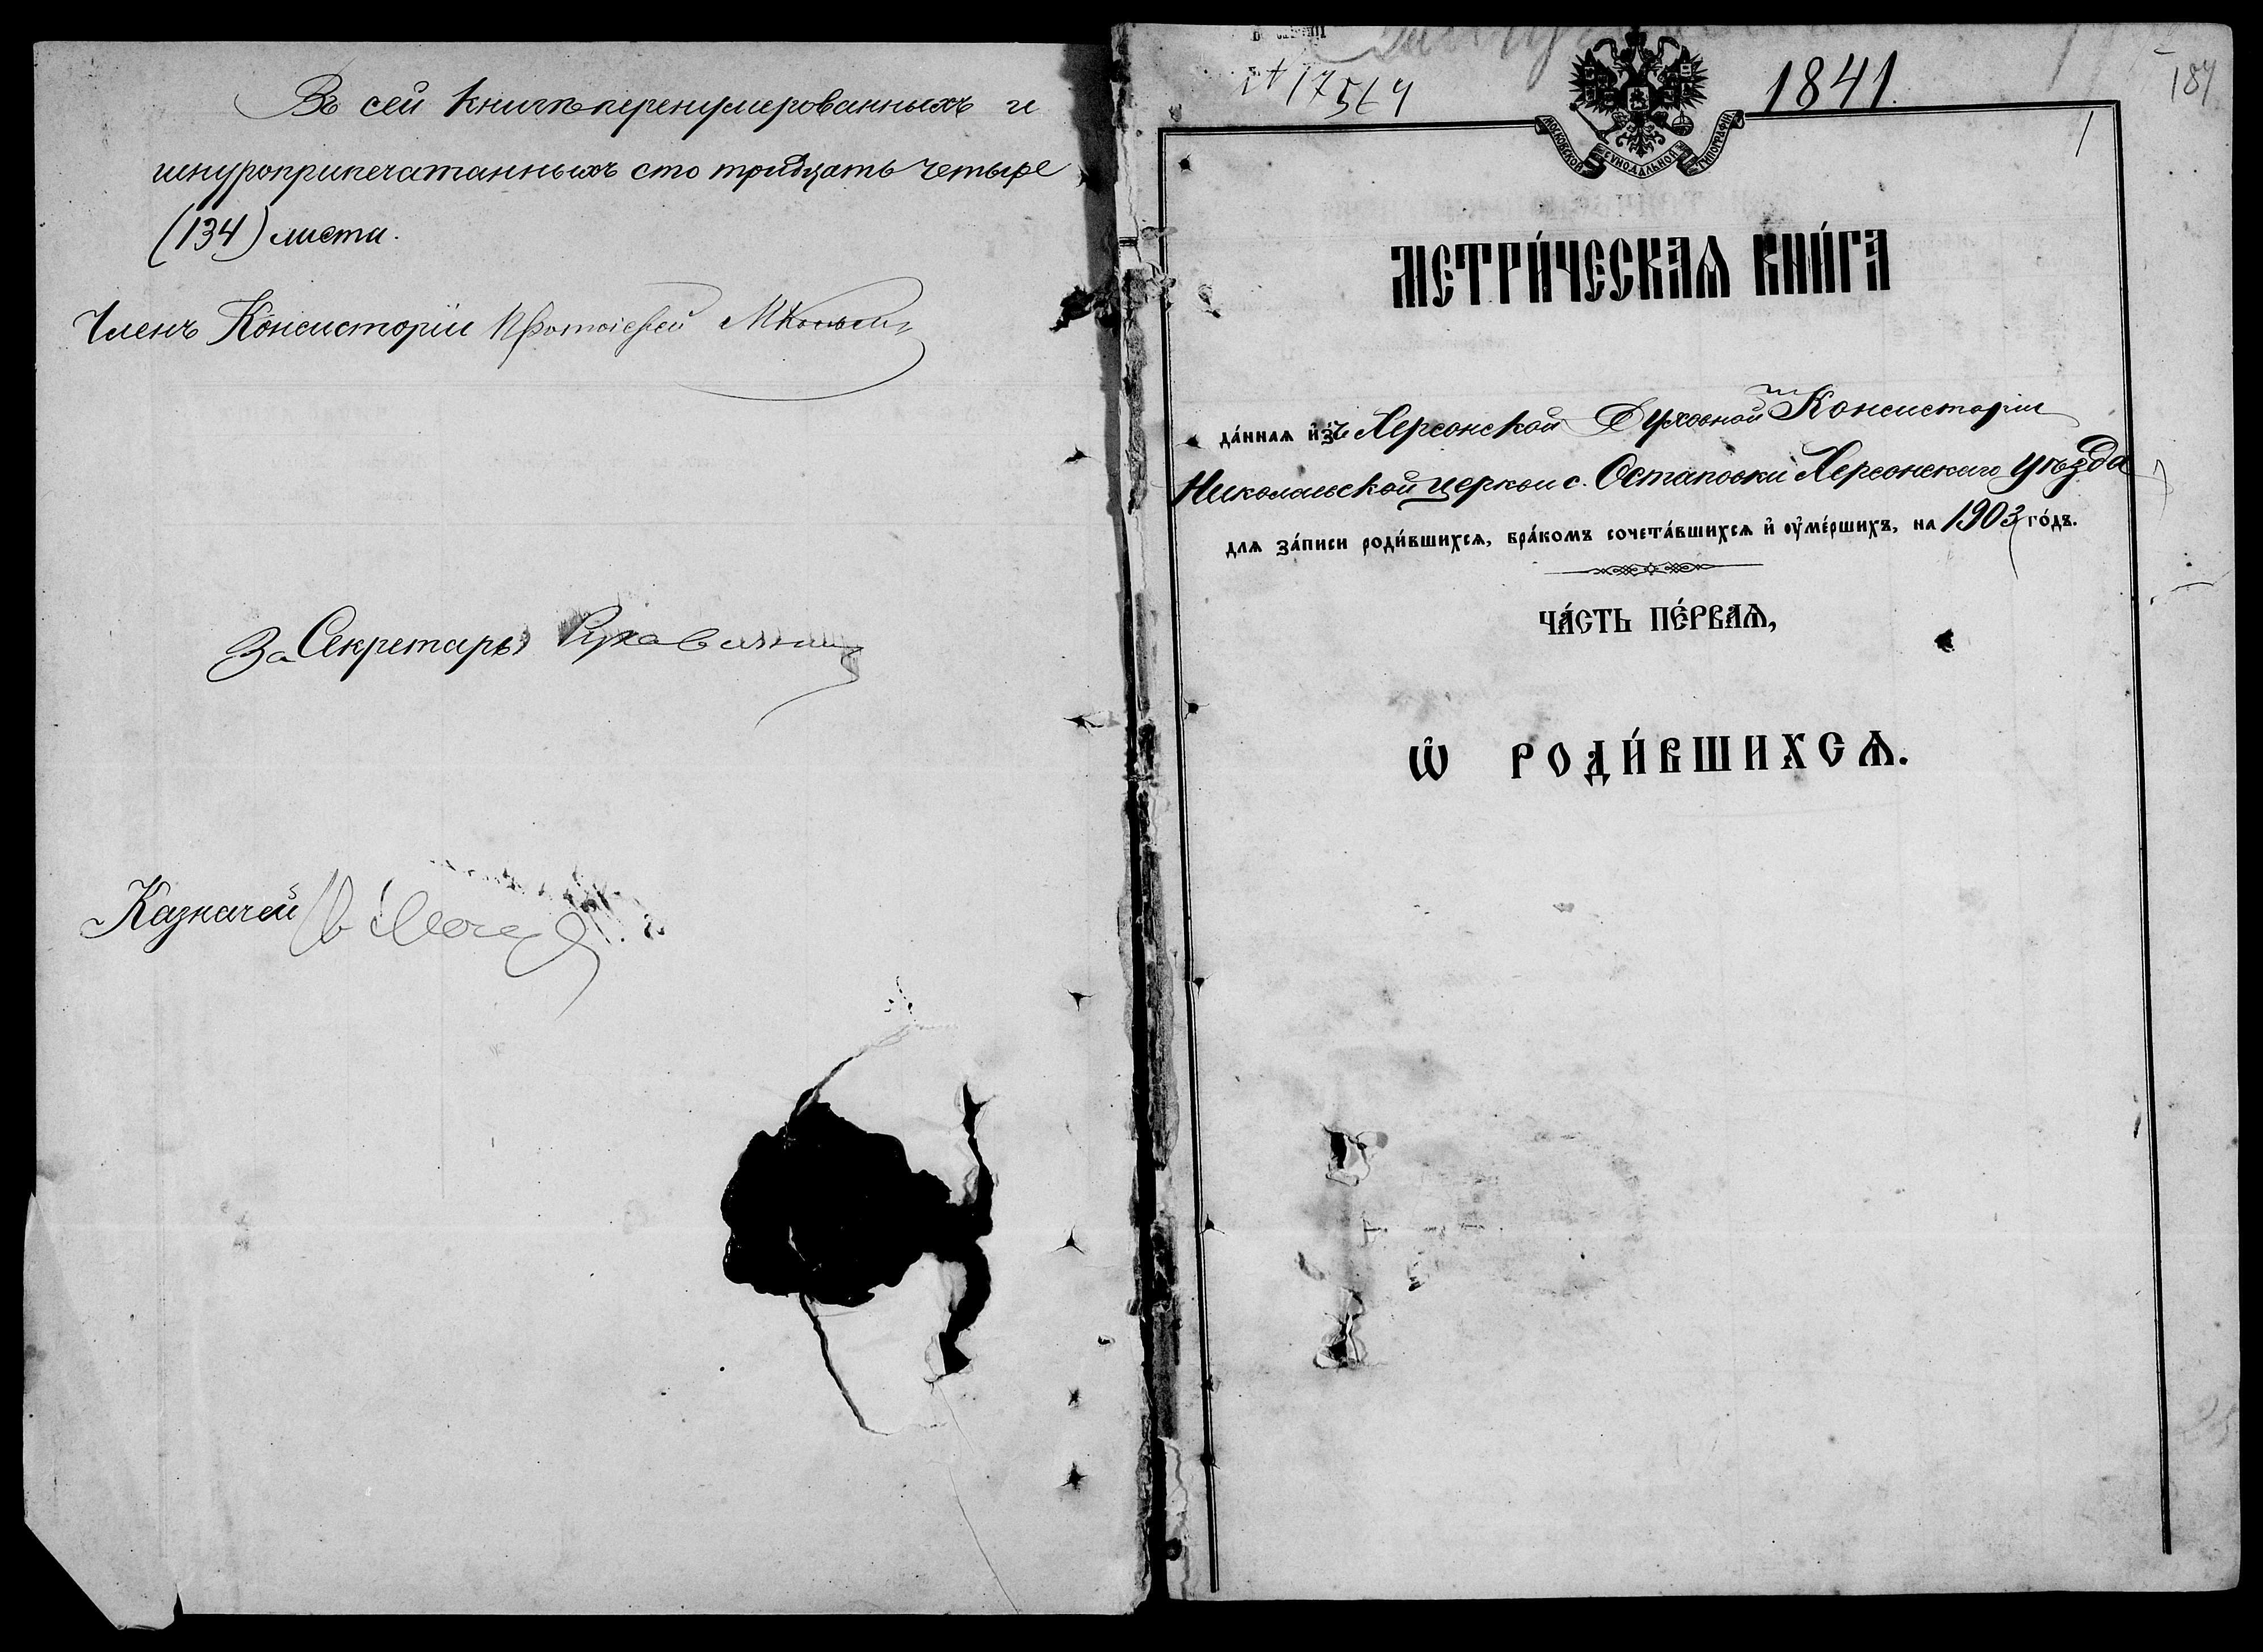 Въ сей книгѣ перенумерованныхъ и
шнуроприпечатанныхъ сто тридцать четыре
(134) листа.
Членъ Консисторіи Протоіерей
За Секретаря
Казначей
1841.
184
1
МОСКОВСКОЙ СѴНОДАЛЬНОЙ ТИПОГРАФІИ
МЕТРИ́ЧЕСКАѦ КНИ́ГА
да́ннаѧ и҆зъ Херсонской Духовной Консисторіи
Николаевской церкви с. Остаповки Херсонскаго уѣзда
длѧ за́писи роди́вшихсѧ, бра́комъ сочета́вшихсѧ и҆ оу҆ме́ршихъ, на 1903 го́дъ.
ЧА́СТЬ ПЕ́РВАѦ,
Ѡ҆ РОДИ́ВШИХСѦ.